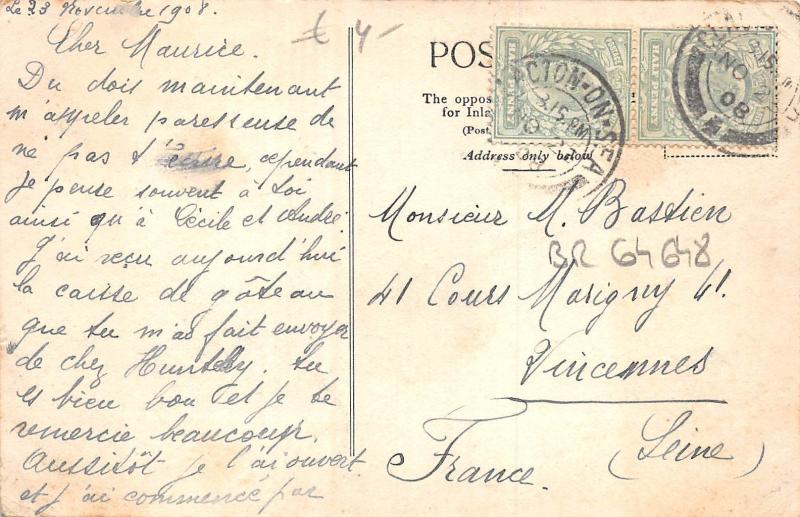 Le 23 Novembre 1908.
Cher Maurice.
Du dois maintenant
m'appeler paresseuse de
ne pas t'écrire, cependant
je pense souvent à toi
ainsi qu'à Cécile et André.
J'ai reçu aujourd'hui
la caisse de gâteau
que tu m'as fait envoyer
de chez Huntely. tu
es bien bon et je te
remercie beaucoup.
Aussitôt je l'ai ouvert
et j'ai commencé par
£ 4-
POS
The oppos
for Inla
(Post
Address only below
HALF PENNY
HALF PENNY
ACTON-ON-SEA
3.15 PM
NO
08
NO
08
Monsieur M. Bastien
BR 64648
41 Cours Marigny 41.
Vincennes
(Seine)
France.